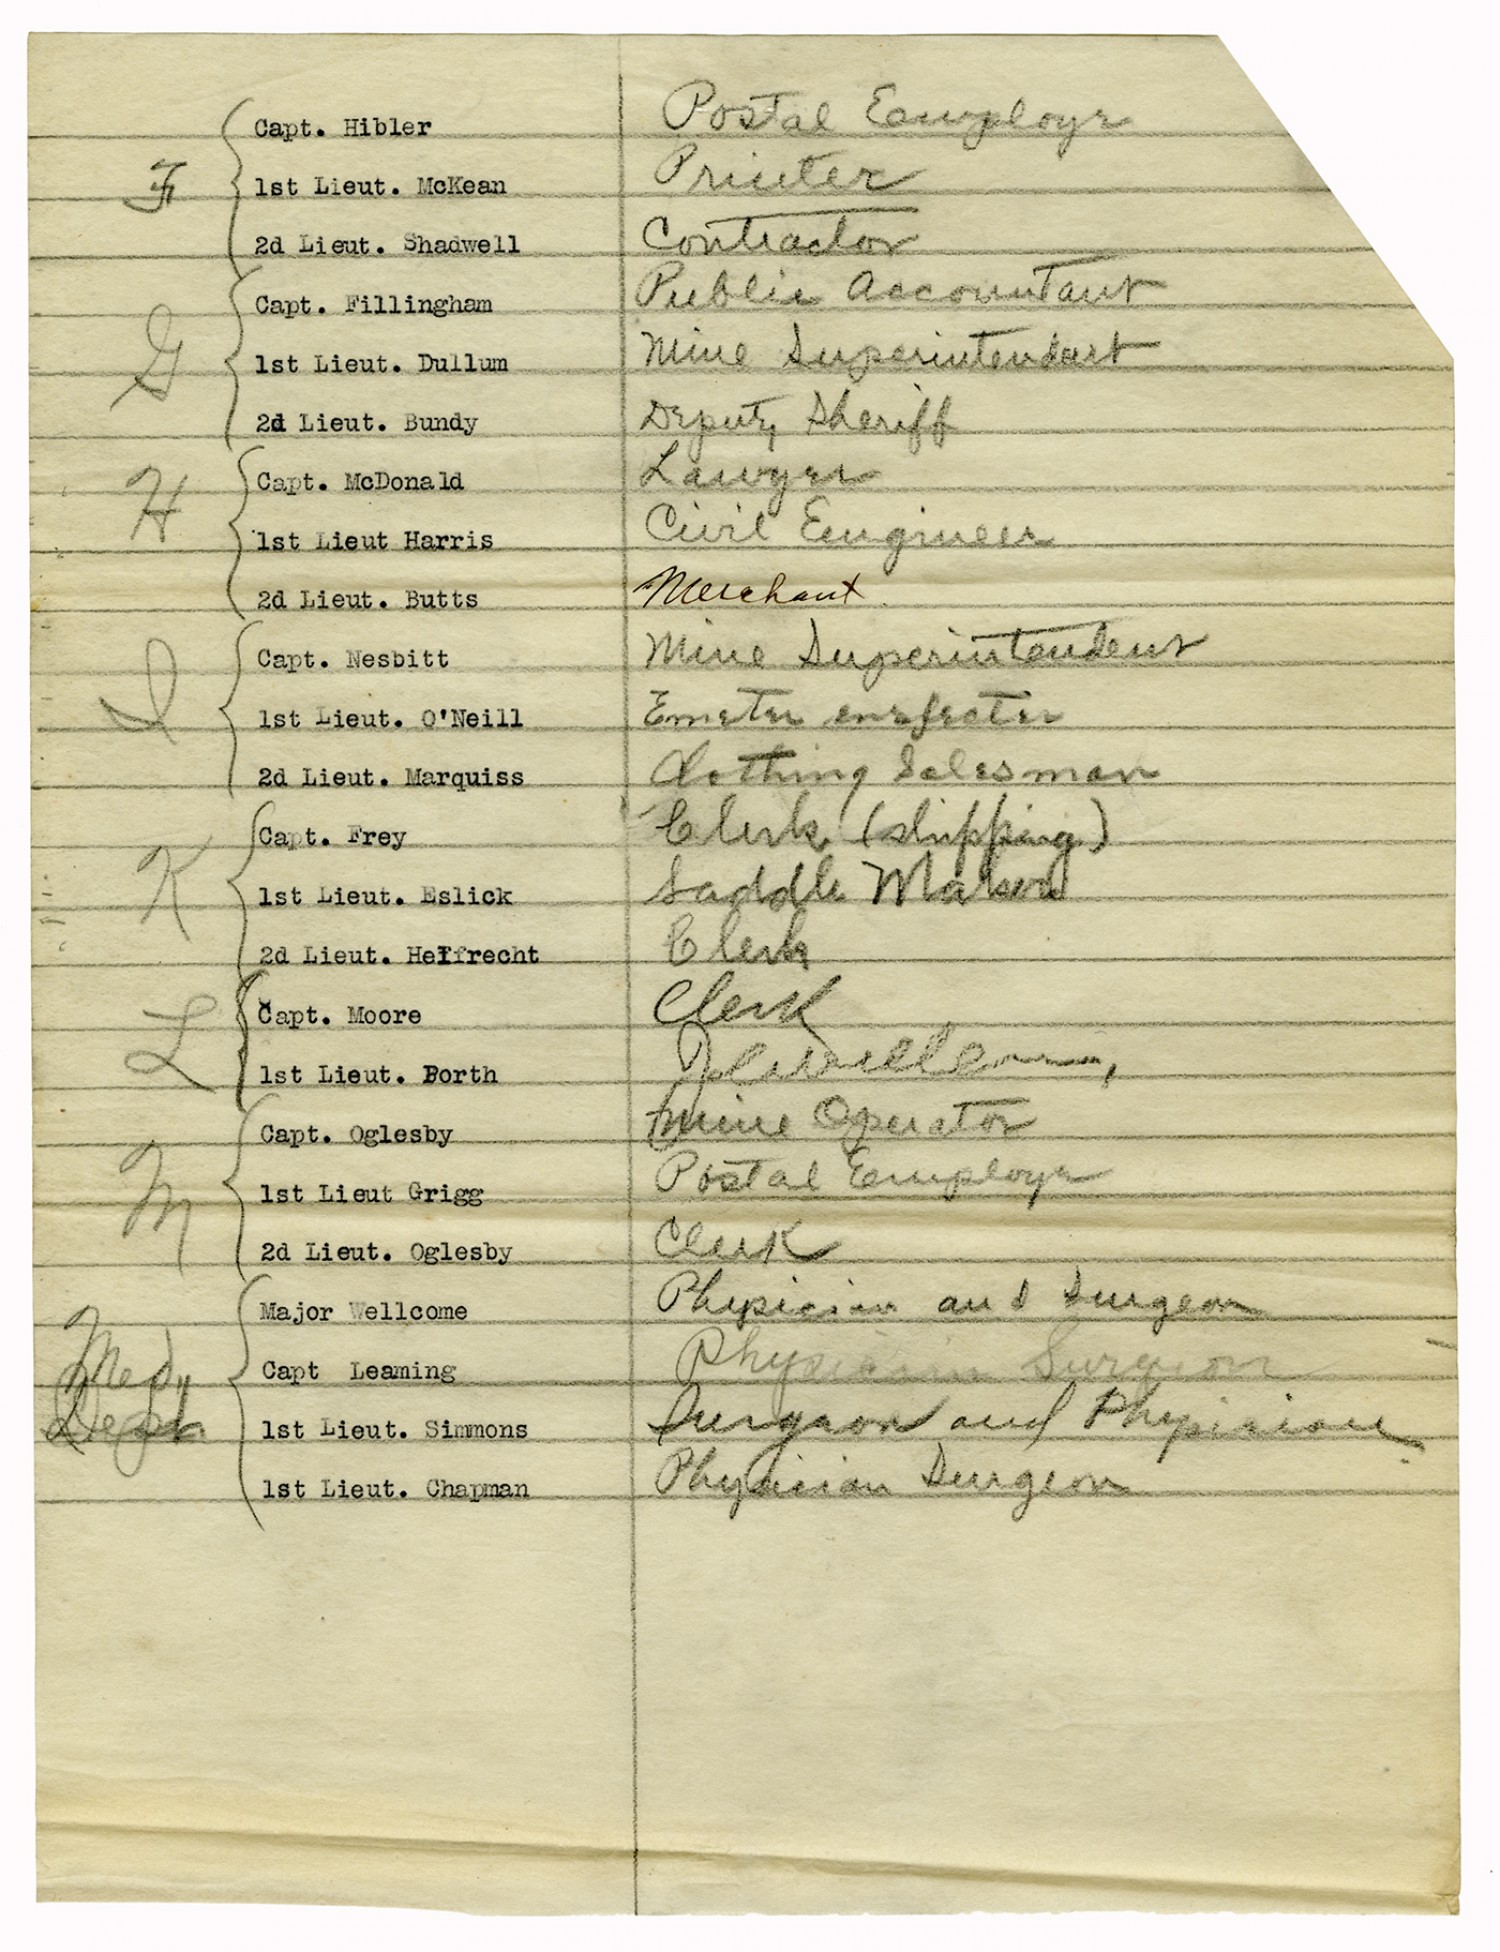 F
Capt. Hibler Postal Employe
1st Lieut. McKean Printer
2d Lieut. Shadwell Contractor
G
Capt. Fillingham Public Accountant
1st Lieut. Dullum Mine Superintendent
2d Lieut. Bundy Deputy Sheriff
H
Capt. McDonald Lawyer
1st Lieut Harris Civil Engineer
2d Lieut. Butts Merchant.
I
Capt. Nesbitt Mine Superintendent
1st Lieut. O'Neill
2d Lieut. Marquiss Clothing Salesman
K
Capt. Frey Clerk (shipping)
1st Lieut. Eslick Saddle Maker
2d Lieut. Helfrecht Clerk
L
Capt. Moore Clerk
1st Lieut. Borth
M
Capt. Oglesby Mine Operator
1st Lieut Grigg Postal Employe
2d Lieut. Oglesby Clerk
Med. Dept.
Major Wellcome Physician and Surgeon
Capt Leaming Physician Surgeon
1st Lieut. Simmons Surgeon and Physician
1st Lieut. Chapman Physician Surgeon